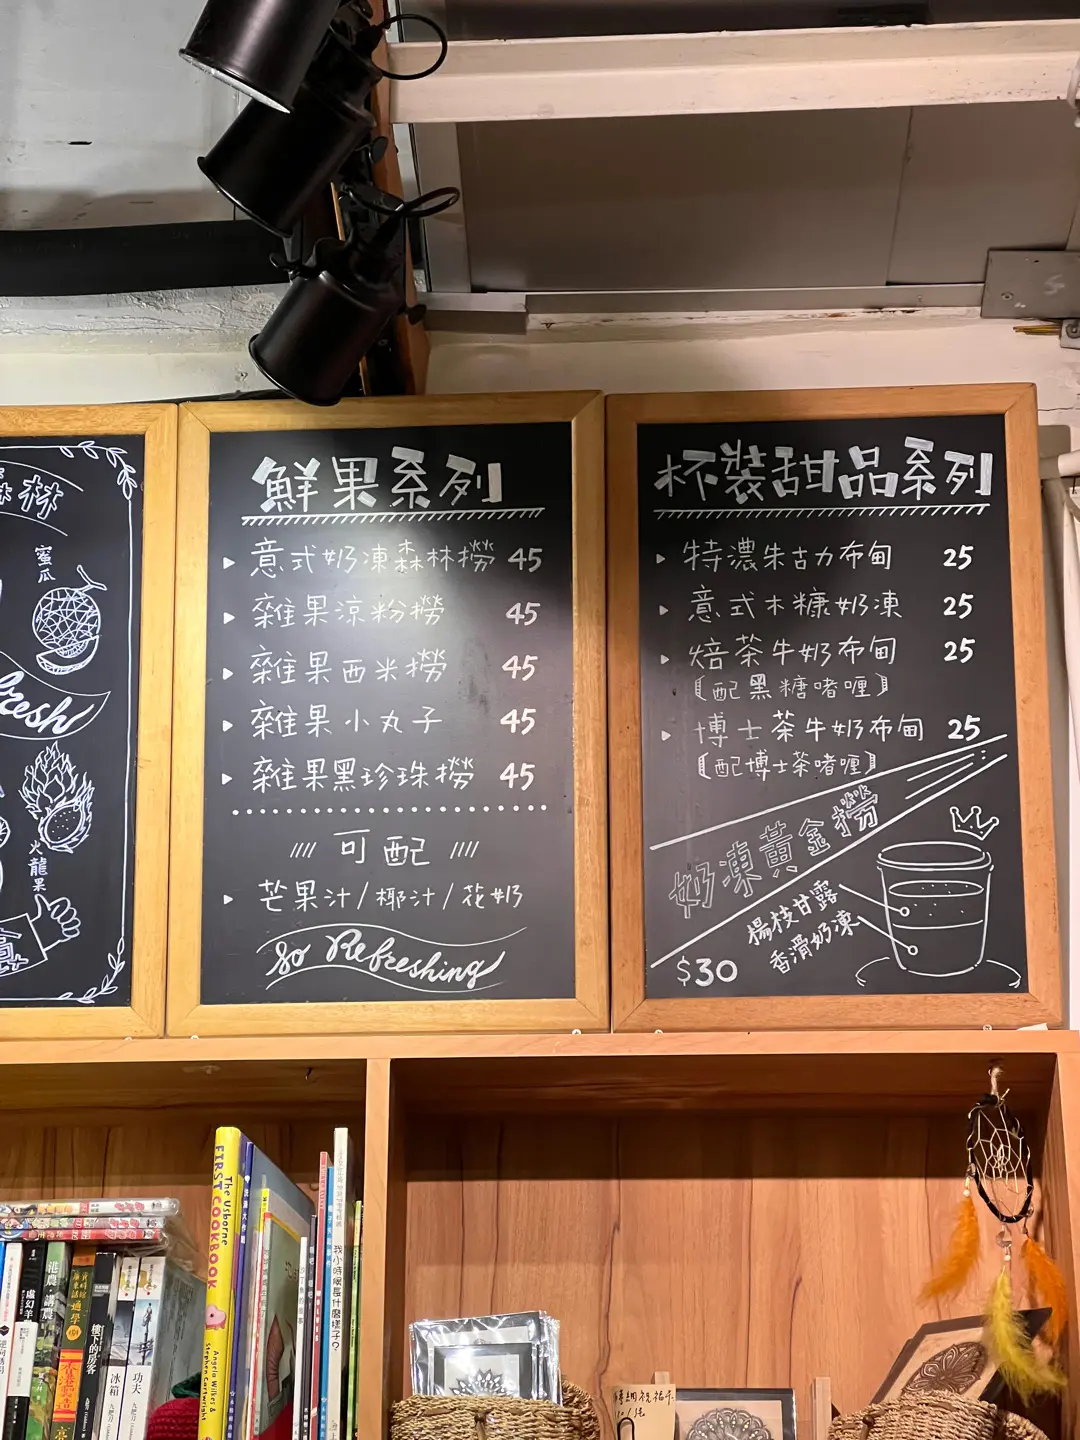 森林
蜜瓜
火龍果
鮮果系列
▸ 意式奶凍森林撈 45
▸ 雜果涼粉撈 45
▸ 雜果西米撈 45
▸ 雜果小丸子 45
▸ 雜果黑珍珠撈 45
//// 可配 ////
▸ 芒果汁/椰汁/花奶
So Refreshing
杯裝甜品系列
▸ 特濃朱古力布甸 25
▸ 意式木糠奶凍 25
▸ 焙茶牛奶布甸 25
【配黑糖啫喱】
▸ 博士茶牛奶布甸 25
【配博士茶啫喱】
奶凍黃金撈
楊枝甘露
香滑奶凍
$30
The Usborne
FIRST COOKBOOK
Angela Wilkes &
Stephen Cartwright
我小時候是什麼樣子?
港農·講農
樓下的房客
冰箱
功夫